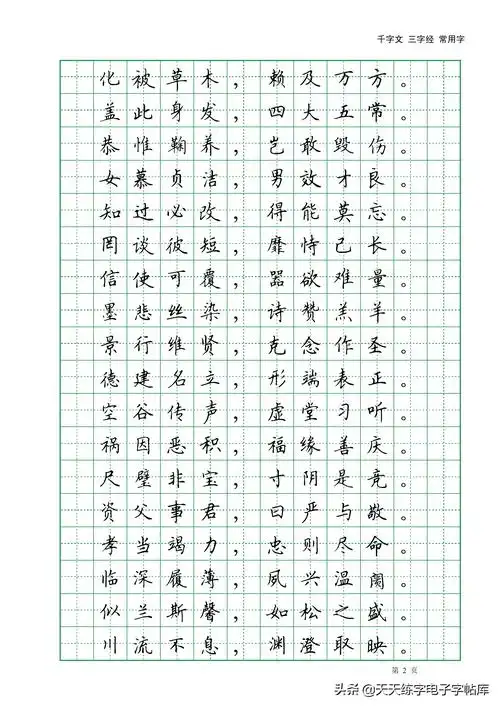 千字文 三字经 常用字
化被草木，赖及万方。
盖此身发，四大五常。
恭惟鞠养，岂敢毁伤。
女慕贞洁，男效才良。
知过必改，得能莫忘。
罔谈彼短，靡恃己长。
信使可覆，器欲难量。
墨悲丝染，诗赞羔羊。
景行维贤，克念作圣。
德建名立，形端表正。
空谷传声，虚堂习听。
祸因恶积，福缘善庆。
尺璧非宝，寸阴是竞。
资父事君，曰严与敬。
孝当竭力，忠则尽命。
临深履薄，夙兴温凊。
似兰斯馨，如松之盛。
川流不息，渊澄取映。
第 2 页
头条 @天天练字电子字帖库